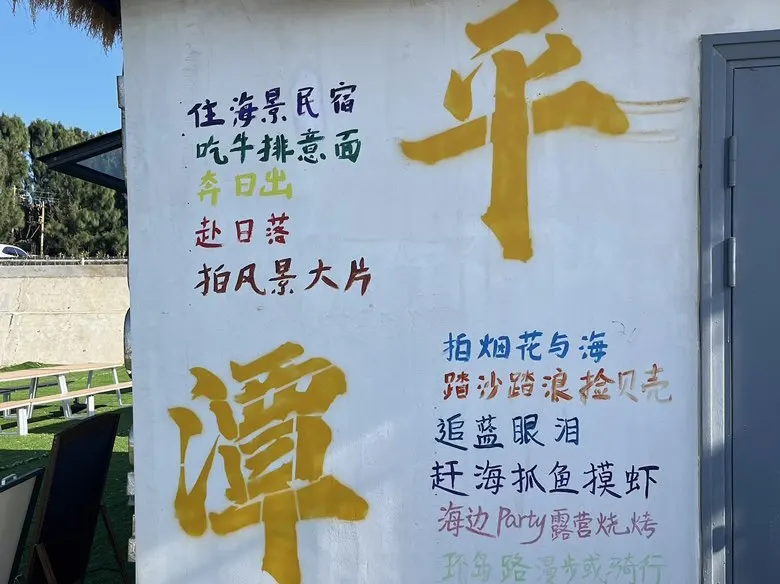 平
住海景民宿
吃牛排意面
奔日出
赴日落
拍风景大片
潭
拍烟花与海
踏沙踏浪捡贝壳
追蓝眼泪
赶海抓鱼摸虾
海边Party露营烧烤
环岛路漫步或骑行